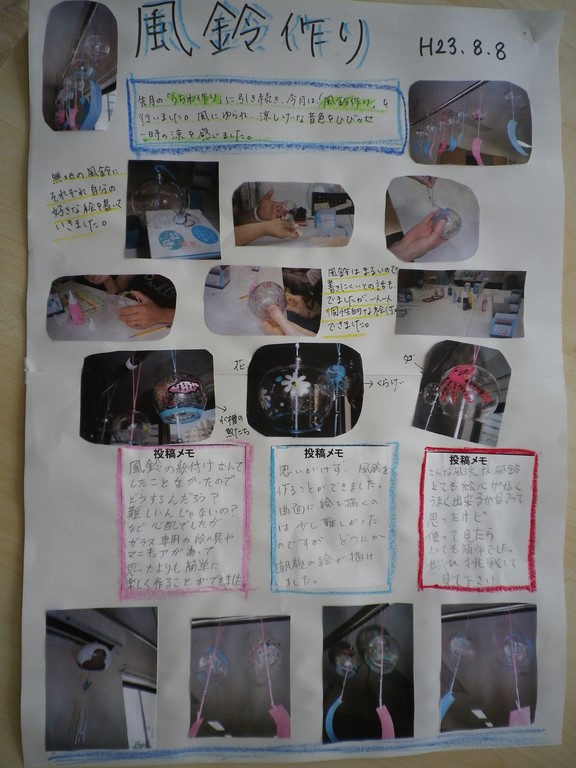 風鈴作り
H23.8.8
先月の「うちわ作り」に引き続き、今月は「風鈴作り」を
行いました。風にゆられ、涼しげな音色をひびかせ
一時の涼を感じました。
無地の風鈴に
それぞれ自分の
好きな絵を書いて
いきました。
風鈴はまるいので
書きにくいとの話も
でましたが、一人一人
個性的な絵付が
できました。
花
くらげ
投稿メモ
風鈴の絵付けなんて
したことなかったので
どうするんだろう?
難しいんじゃないの?
など心配でしたが
ガラス専用の絵の具や
マニキュアがあって
思ったよりも簡単に
楽しく作ることができました
投稿メモ
思いがけず、風鈴を
作ることができました。
曲面に絵を描くの
は少し難しかった
のですが、どうにか
朝顔の絵が描け
ました。
投稿メモ
こんな風流な風鈴
とても絵心がなく
うまく出来るかなあって
思ったけど
使って見たら
とっても簡単でした。
ぜひ挑戦して
見て下さい